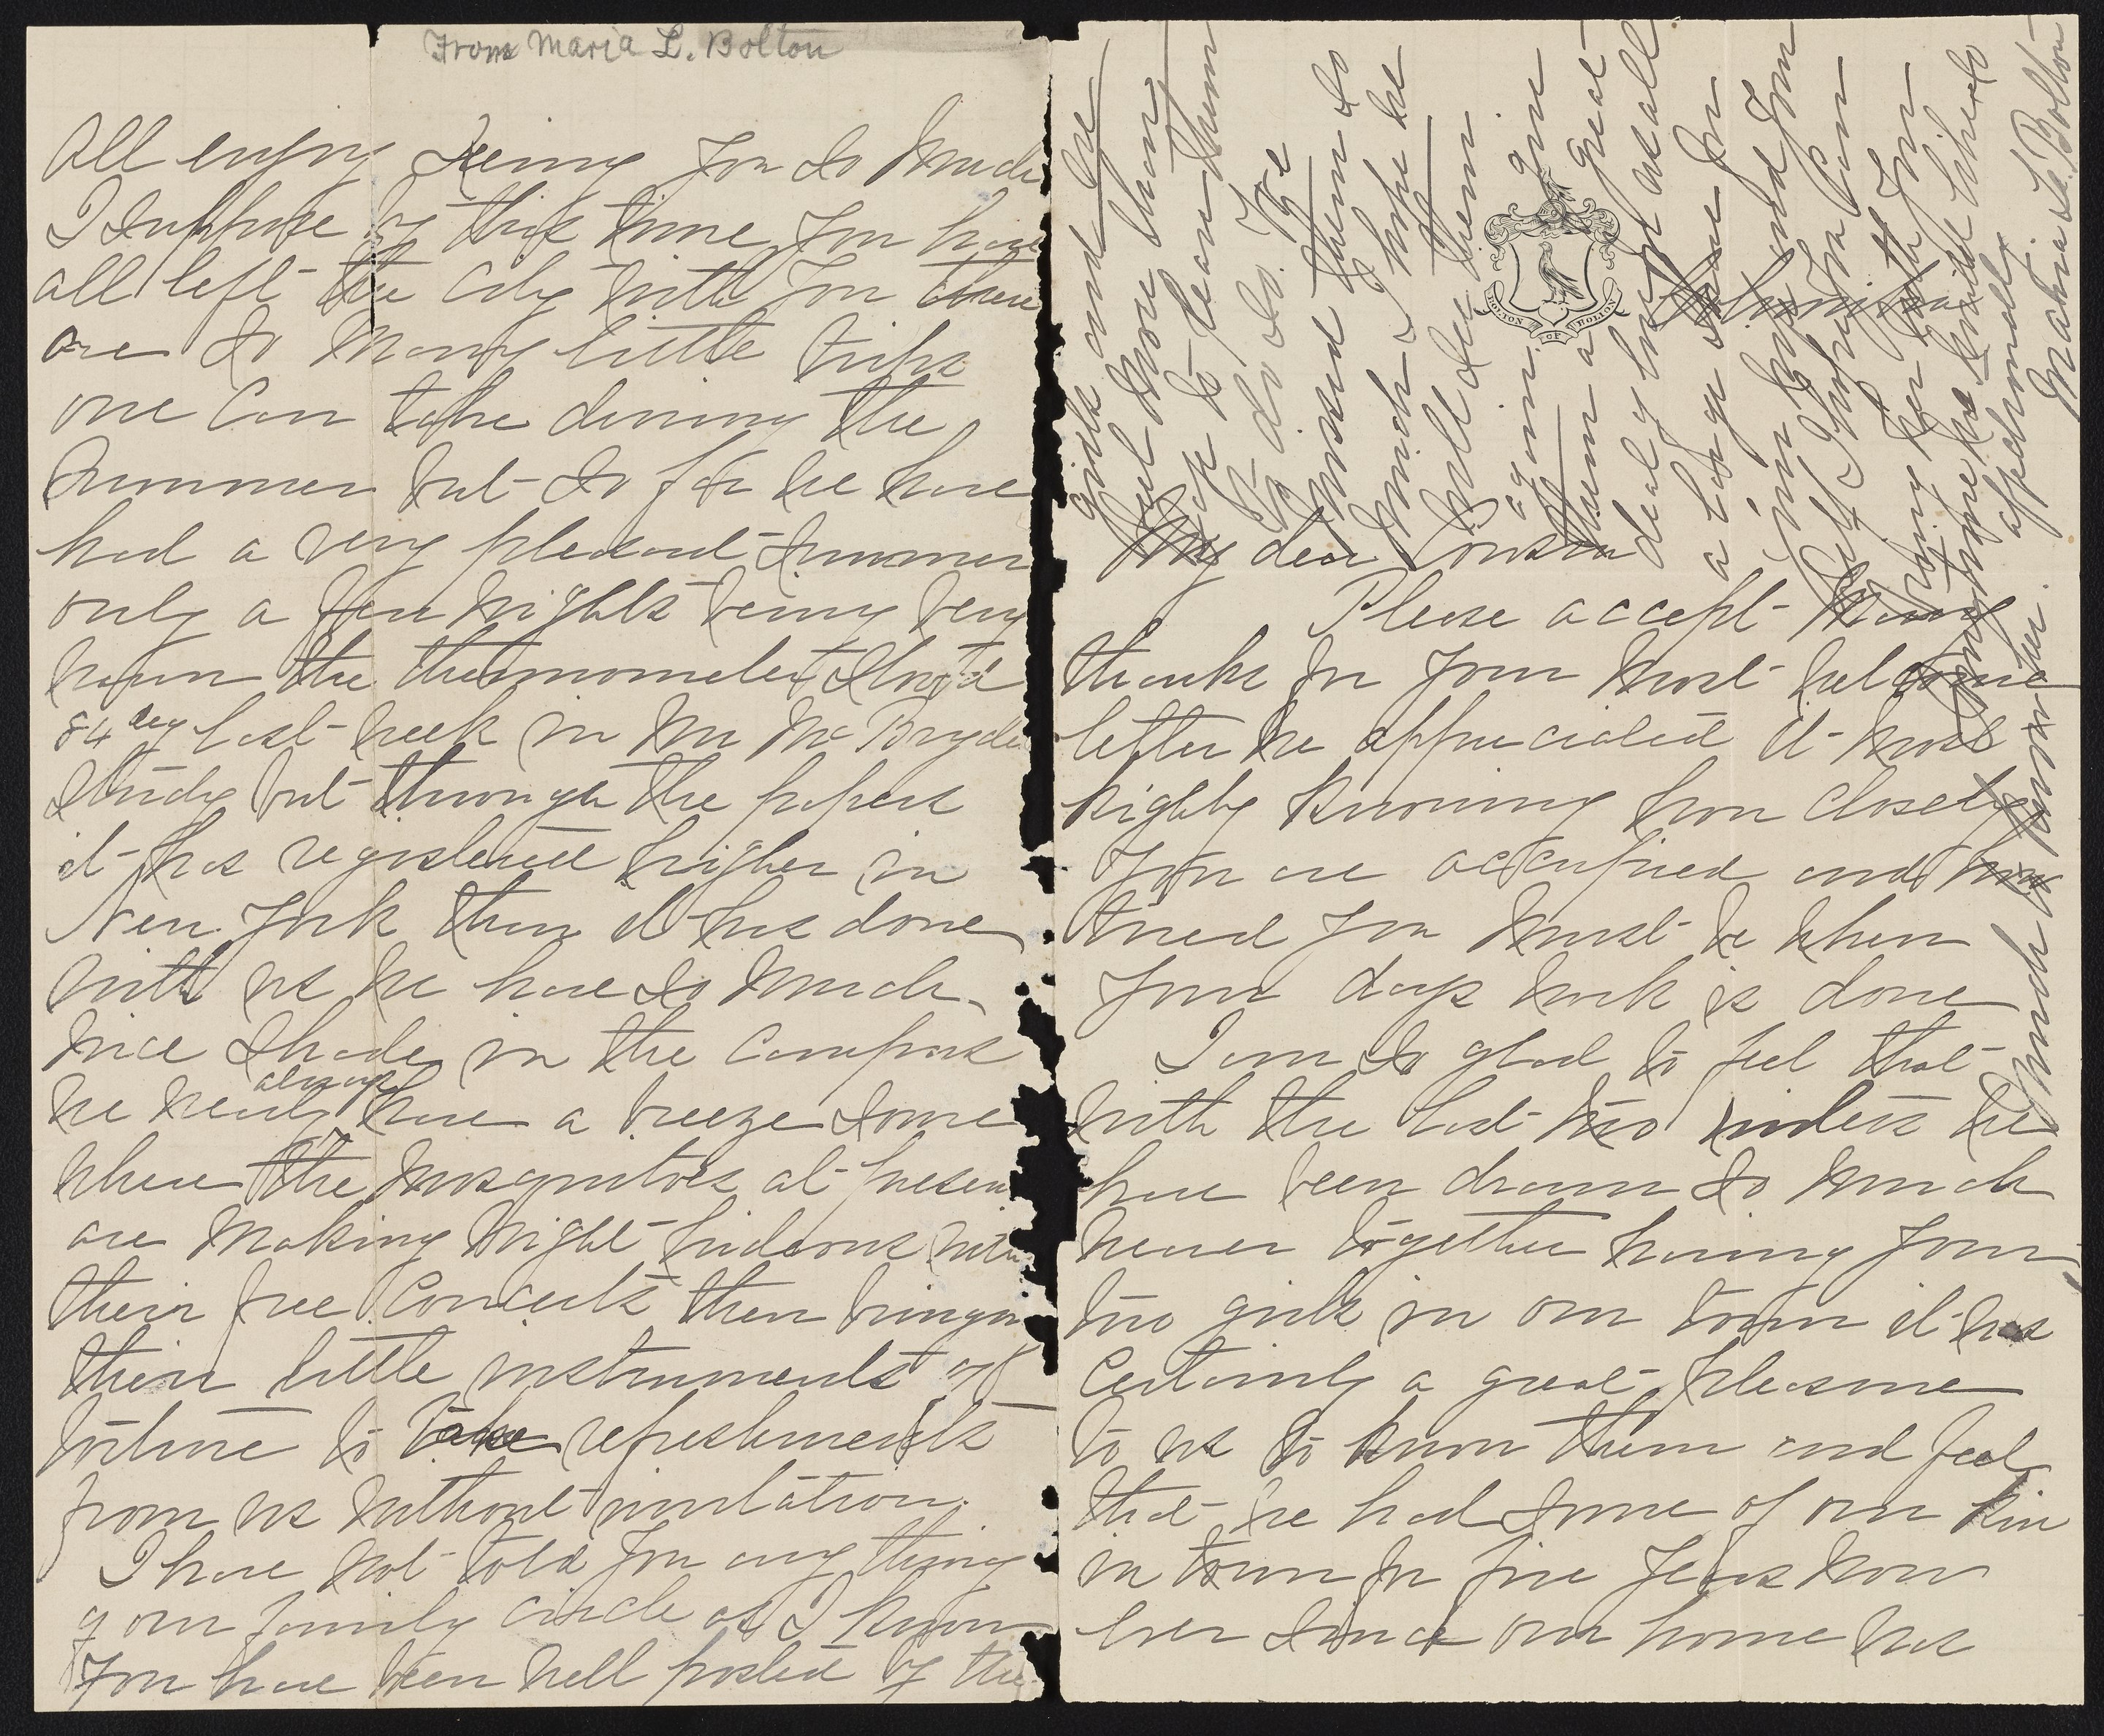 From Maria L. Bolton
All enjoy seeing you so much
I suppose by this time you have
all left the city with you there
are so many little trips
one can take during the
Summer but so far we have
had a very pleasant summer
only a few nights being very
warm the thermometer stood
84 deg last week in Mr McBryde
study but through the papers
it has registered higher in
New York than it has done
with us we have so much
nice shade in the Campus
we nearly always have a breeze some
where the mosquitoes at presen
are making night hideous with
their free Concerts then bringin
their little instruments of
torture to take refreshments
from us without invitation.
I have not told you any thing
of our family circle as I know
you have been well posted by the
BOLTON OF BOLTON
Columbia
My dear Cousin
Please accept many
thanks for your most welcome
letter we appreciated it most
highly knowing how closely
you are occupied and how
tired you must be when
your days work is done
I am so glad to feel that
with the last two winters we
have been drawn so much
nearer together having your
two girls in our town it has
Certainly a great pleasure
to us to know them and feel
that we had some of our kin
in town for five years now
ever since our home has
girls and we
feel more than
sorry to leave them
to do so. We
missed them so
much & I hope we
will see them
again. give
them a great
deal of love as all
a large share for
your
self I hope you can
bring her with you
some time has
affectionately
Maria L. Bolton
much to know her.